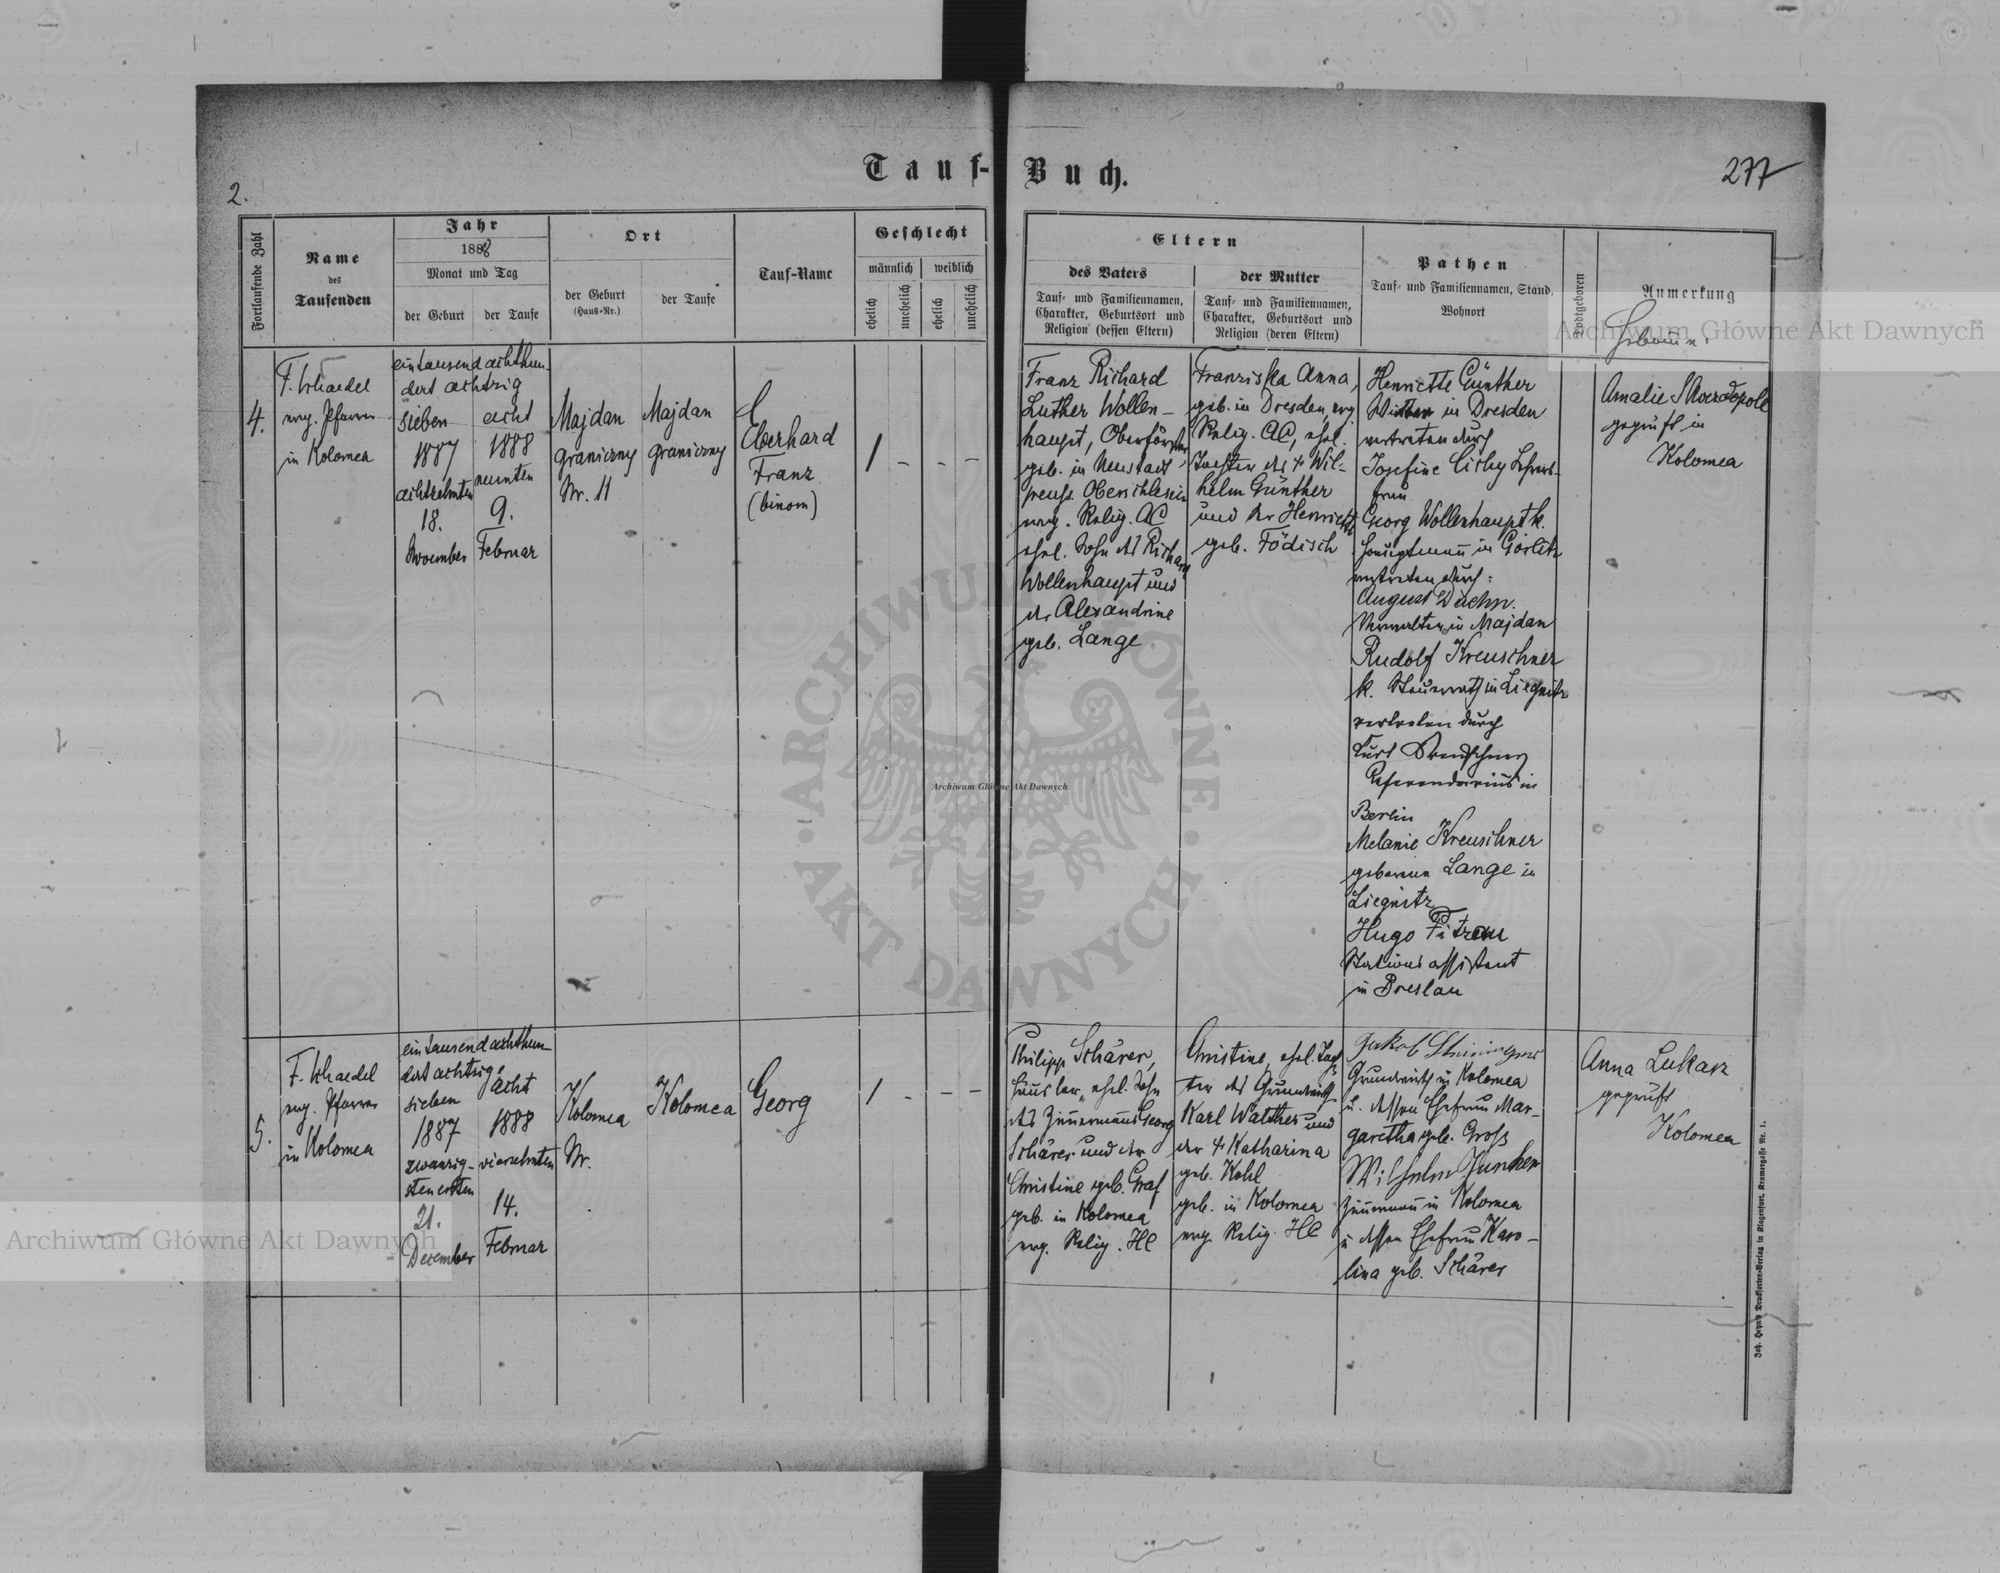 Tauf-Buch.
2.
277
Fortlaufende Zahl
Name
des
Taufenden
Jahr
1888
Monat und Tag
der Geburt
der Taufe
Ort
der Geburt
(Haus-Nr.)
der Taufe
Tauf-Name
Geschlecht
männlich
weiblich
ehelich
unehelich
ehelich
unehelich
Eltern
des Vaters
Tauf- und Familiennamen,
Charakter, Geburtsort und
Religion (dessen Eltern)
der Mutter
Tauf- und Familiennamen,
Charakter, Geburtsort und
Religion (deren Eltern)
Pathen
Tauf- und Familiennamen, Stand,
Wohnort
Todtgeboren
Anmerkung
4.
evg. Pfarrer
in Kolomea
eintausend achthun-
dert achtzig
sieben
1887
achtzehnten
18.
November
acht
1888
neunten
9.
Februar
Majdan
graniczny
Nr. 11
Majdan
graniczny
Eberhard
Franz
(binom)
1
-
-
-
Franz Richard
Luther Wollen-
haupt, Oberförster
geb. in Neustadt
preuss. Oberschlesien
evg. Relig. AC
ehel. Sohn des Richard
Wollenhaupt und
der Alexandrine
geb. Lange
Franziska Anna,
geb. in Dresden, evg.
Relig. AC, ehel.
Tochter des † Wil-
helm Günther
und der Henriette
geb. Födisch
Henriette Günther
in Dresden
vertreten durch
Josefine
frau
Georg Wollenhaupt k.
Hauptmann in Görlitz
vertreten durch:
August
Verwalter in Majdan
Rudolf Kreuschner
k. Steuerrath in Liegnitz
vertreten durch
Kurt Kreuschner
Referendarius in
Berlin
Melanie Kreuschner
geborene Lange in
Liegnitz
Hugo
Stationsassistent
in Breslau
Amalie
geprüft in
Kolomea
5.
evg. Pfarrer
in Kolomea
eintausend achthun-
dert achtzig
sieben
1887
zwanzig-
sten ersten
21.
December
acht
1888
vierzehnten
14.
Februar
Kolomea
Nr.
Kolomea
Georg
1
-
-
-
Philipp Schärer,
Häusler, ehel. Sohn
des Zimmermanns Georg
Schärer und der
Christine geb. Graf
geb. in Kolomea
evg. Relig. HC
Christine, ehel. Toch-
ter des Grundwirth
Karl Walther und
der † Katharina
geb. Kohl
geb. in Kolomea
evg. Relig. HC
Jakob
Grundwirth in Kolomea
u. dessen Ehefrau Mar-
garetha geb. Gross
Wilhelm Junker
Zimmermann in Kolomea
u dessen Ehefrau Karo-
lina geb. Schärer
Anna Lukasz
geprüft
Kolomea
Joh. Heyn's Drucksorten-Verlag in Klagenfurt, Kramergasse Nr. 1.
Archiwum Główne Akt Dawnych
Archiwum Główne Akt Dawnych
Archiwum Główne Akt Dawnych
ARCHIWUM GŁÓWNE · AKT DAWNYCH ·